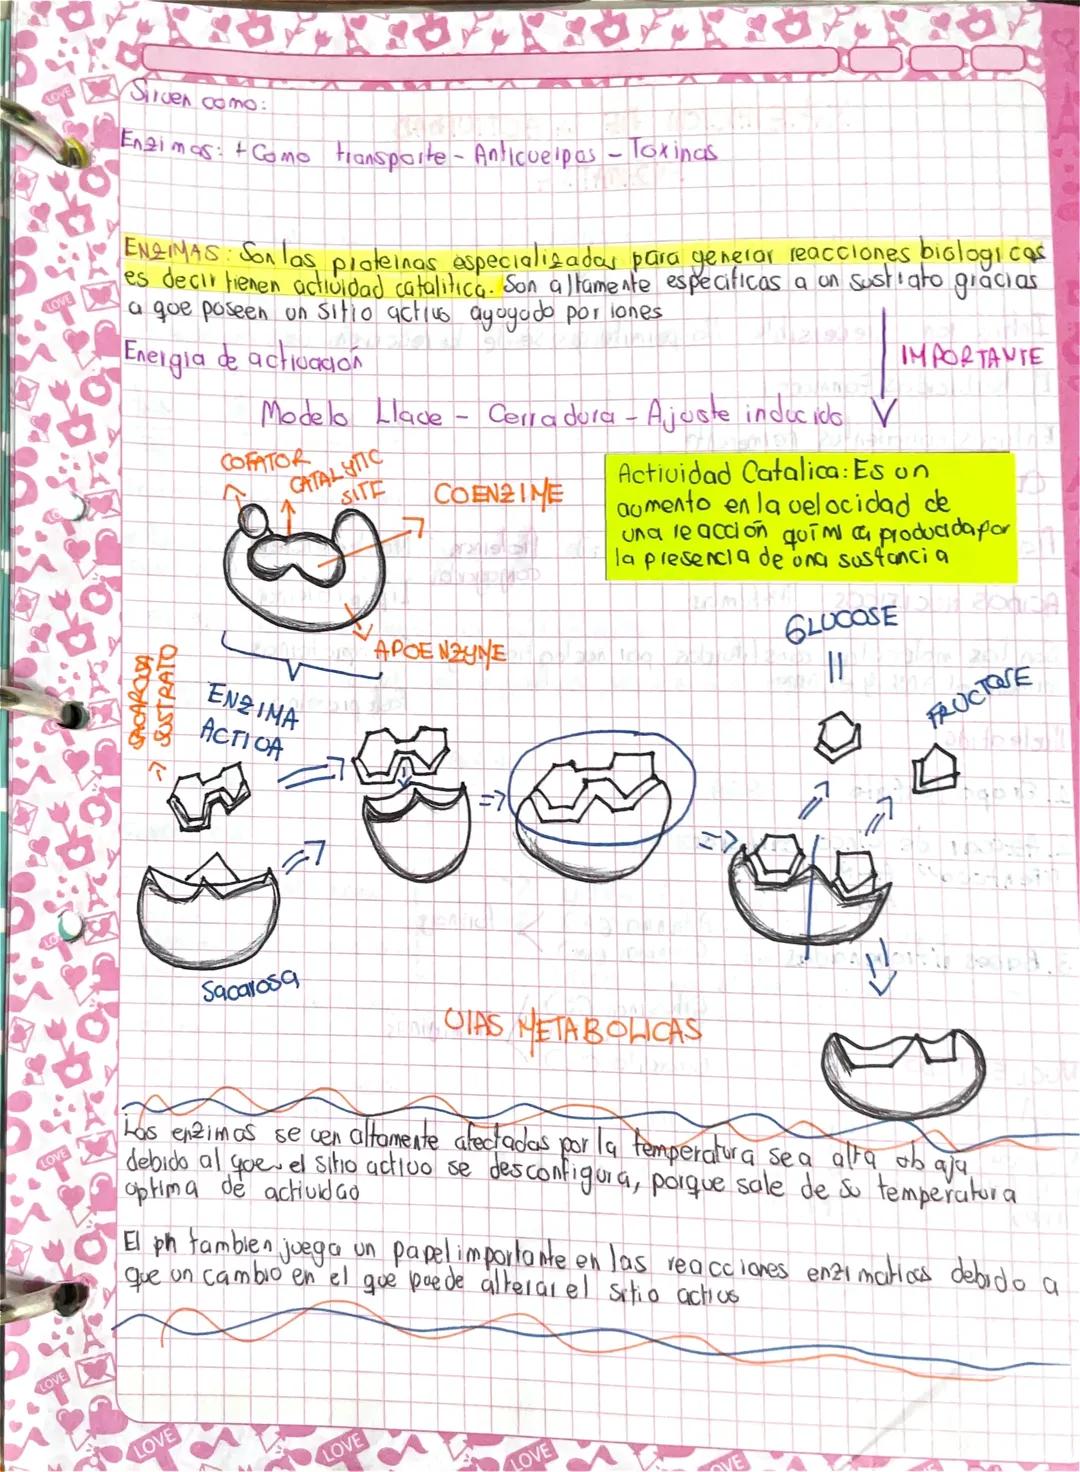 Sirven como:
Enzimas: + Como transporte - Anticuerpos - Toxinas
ENZIMAS: Son las proteinas especializadas para generar reacciones biologicas
es decir tienen actividad catalitica. Son altamente especificas a un sustrato gracias
a que poseen un sitio activo apoyado por iones
Energia de activación
IMPORTANTE
Modelo Llave - Cerradura - Ajuste inducido
COFATOR
CATALYTIC
SITE
COENZIME
Actividad Catalica: Es un
aumento en la velocidad de
una reacción química producida por
la presencia de una sustancia
APOENZYME
GLUCOSE
FRUCTOSE
SACAROSA
SUSTRATO
ENZIMA
ACTIVA
Sacarosa
VIAS METABOLICAS
Las enzimas se ven altamente afectadas por la temperatura sea alta o baja
debido al que el sitio activo se desconfigura, porque sale de su temperatura
optima de actividad
El ph tambien juega un papel importante en las reacciones enzimaticas debido a
que un cambio en el que puede alterar el sitio activo
LOVE
LOVE
LOVE
LOVE
LOVE
LOVE
LOVE